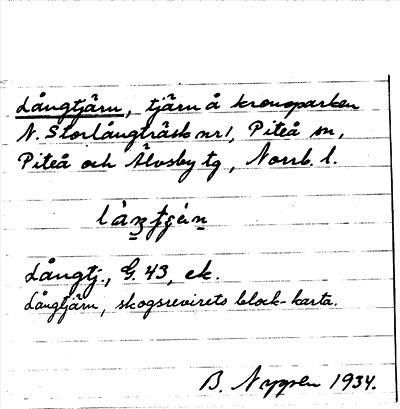 Långtjärn, tjärn å kronoparken
N. Storlångträsk nr 1, Piteå sn,
Piteå och Älvsby tg, Norrb. l.
Långtj., G. 43, ek.
Långtjärn, skogsrevirets block-karta.
B. Nyqven 1934.